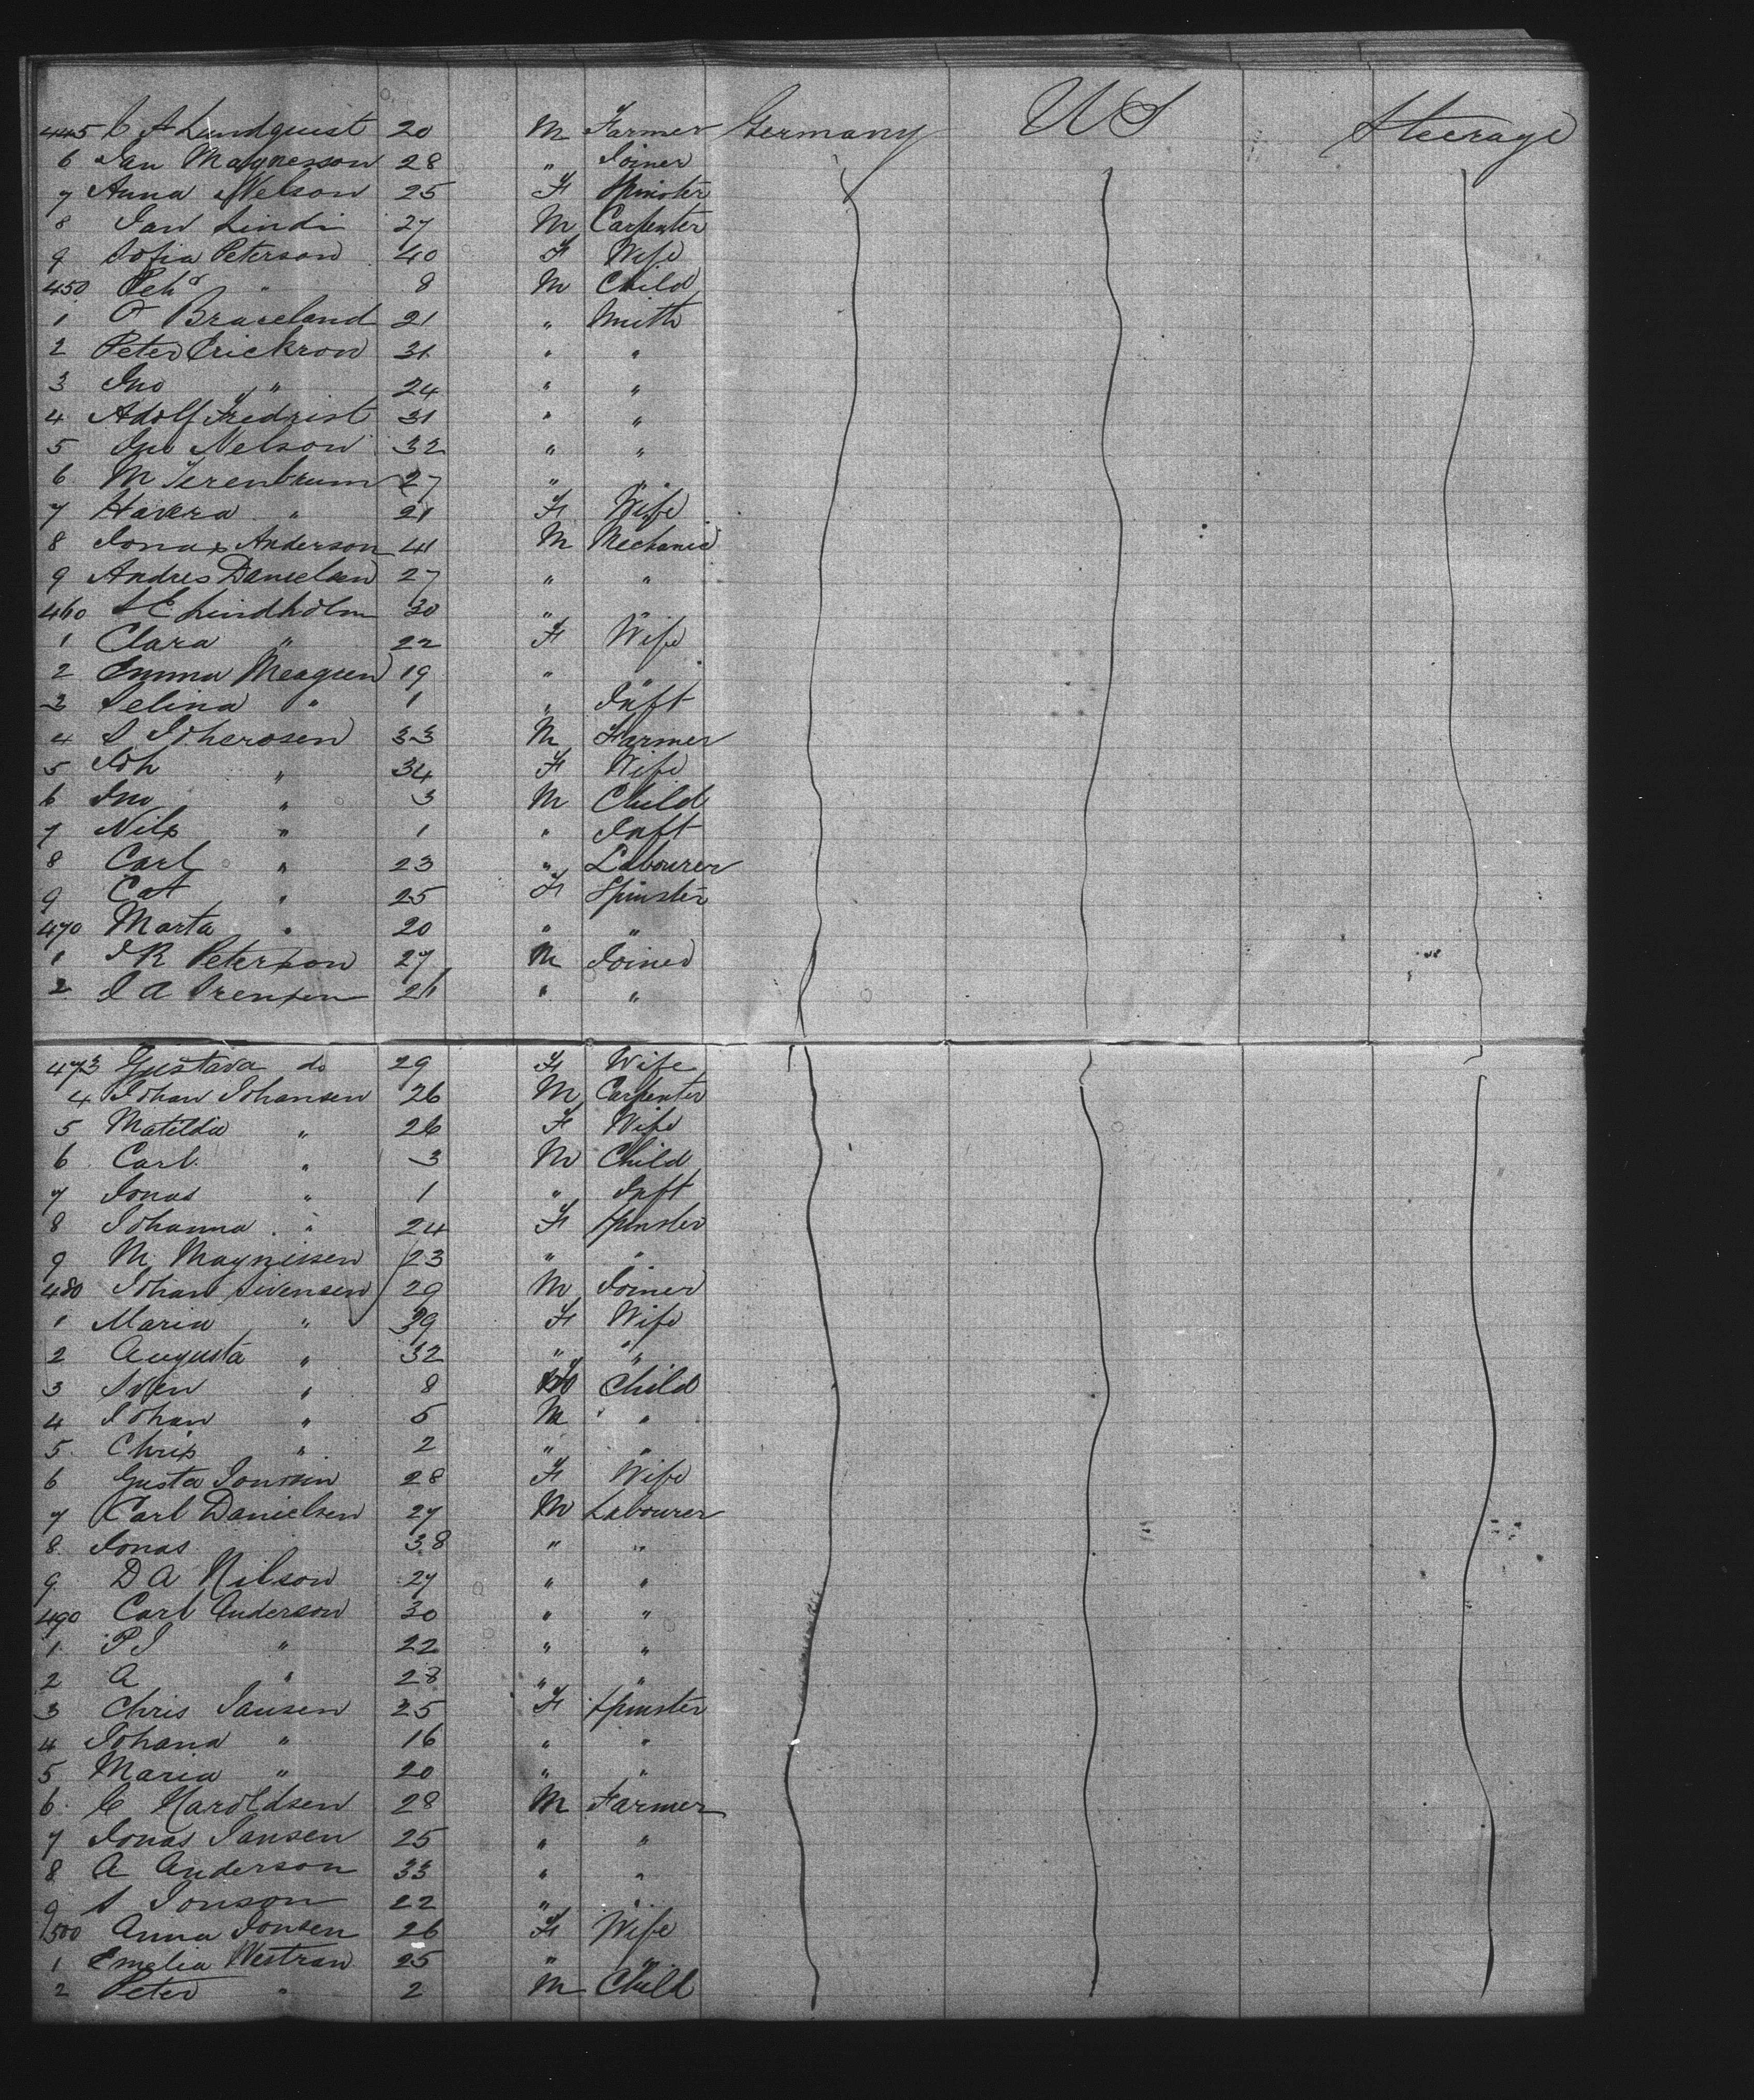 445 C A Lundquist 20 M Farmer Germany US Steerage
6 Jan Magnesson 28 " Joiner
7 Anna Nelson 25 F Spinster
8 Jan Lindi 27 M Carpenter
9 Sofia Peterson 40 F Wife
450 Peh " 8 M Child
1 O Braseland 21 " Smith
2 Peter Erickson 31 " "
3 Jno " 24 " "
4 Adolf Fredrist 31 " "
5 Jno Nelson 32 " "
6 M Terenbrum 27 " "
7 Havera " 21 F Wife
8 Jonas Anderson 41 M Mechanic
9 Andres Danielsen 27 " "
460 S E Lindholm 30 " "
1 Clara " 22 F Wife
2 Emma Meagren 19 " "
3 Selina " 1 " Inft
4 S Joherosen 33 M Farmer
5 Joh " 34 F Wife
6 Jno " 3 M Child
7 Nils " 1 " Inft
8 Carl " 23 " Labourer
9 Cat " 25 F Spinster
470 Marta " 20 " "
1 J R Peterson 27 M Joiner
2 J A Srensen 21 " "
473 Gustava do 29 F Wife
4 Johan Johansen 26 M Carpenter
5 Matilda " 26 F Wife
6 Carl " 3 M Child
7 Jonas " 1 " Inft
8 Johanna " 24 F Spinster
9 M Magnissen 23 " "
480 Johan Sivensen 29 M Joiner
1 Maria " 39 F Wife
2 Augusta " 32 " "
3 Sven " 8 Child
4 Johan " 5 M "
5 Chris " 2 " "
6 Gusta 28 F Wife
7 Carl Danielsen 27 M Labourer
8 Jonas 38 " "
9 D A Nilson 27 " "
490 Carl Anderson 30 " "
1 P J " 22 " "
2 A " 28 " "
3 Chris Jansen 25 F Spinster
4 Johana " 16 " "
5 Maria " 20 " "
6 C Haroldsen 28 M Farmer
7 Jonas Jansen 25 " "
8 A Anderson 33 " "
9 S Jonson 22 " "
500 Anna Jonsen 26 F Wife
1 Emelia Westran 25 " "
2 Peter " 2 M Child